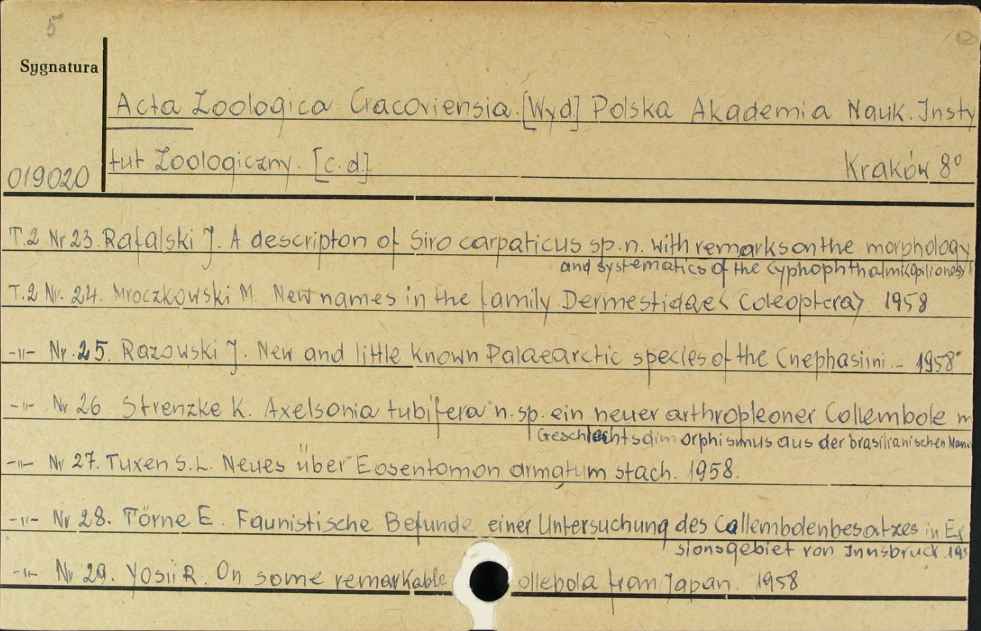 5
Sygnatura
Acta Zoologica Cracoviensia. [Wyd] Polska Akademia Nauk. Insty
tut Zoologiczny. [c.d.]
Kraków 8°
019020
T.2 Nr 23. Rafalski J. A descripton of Siro carpaticus sp.n. with remarks on the morphology
and systematics of the Cyphophthalmi (Opiliones)
T.2 Nr. 24. Mroczkowski M. New names in the family Dermestidae < Coleoptera > 1958
-"- Nr. 25. Razowski J. New and little known Palaearctic species of the Cnephasiini. - 1958
-"- Nr 26 Strenzke K. Axelsonia tubifera n. sp. ein neuer arthropleoner Collembole m
Geschlechtsdimorphismus aus der brasilianischen Man
-"- Nr 27. Tuxen S.L. Neues über Eosentomon armatum stach. 1958.
-"- Nr 28. Törne E. Faunistische Befunde einer Untersuchung des Collembolenbesatzes in Ex
sionsgebiet von Innsbruck 195
-"- Nr 29. Yosii R. On some remarkable ollebola from Japan. 1958